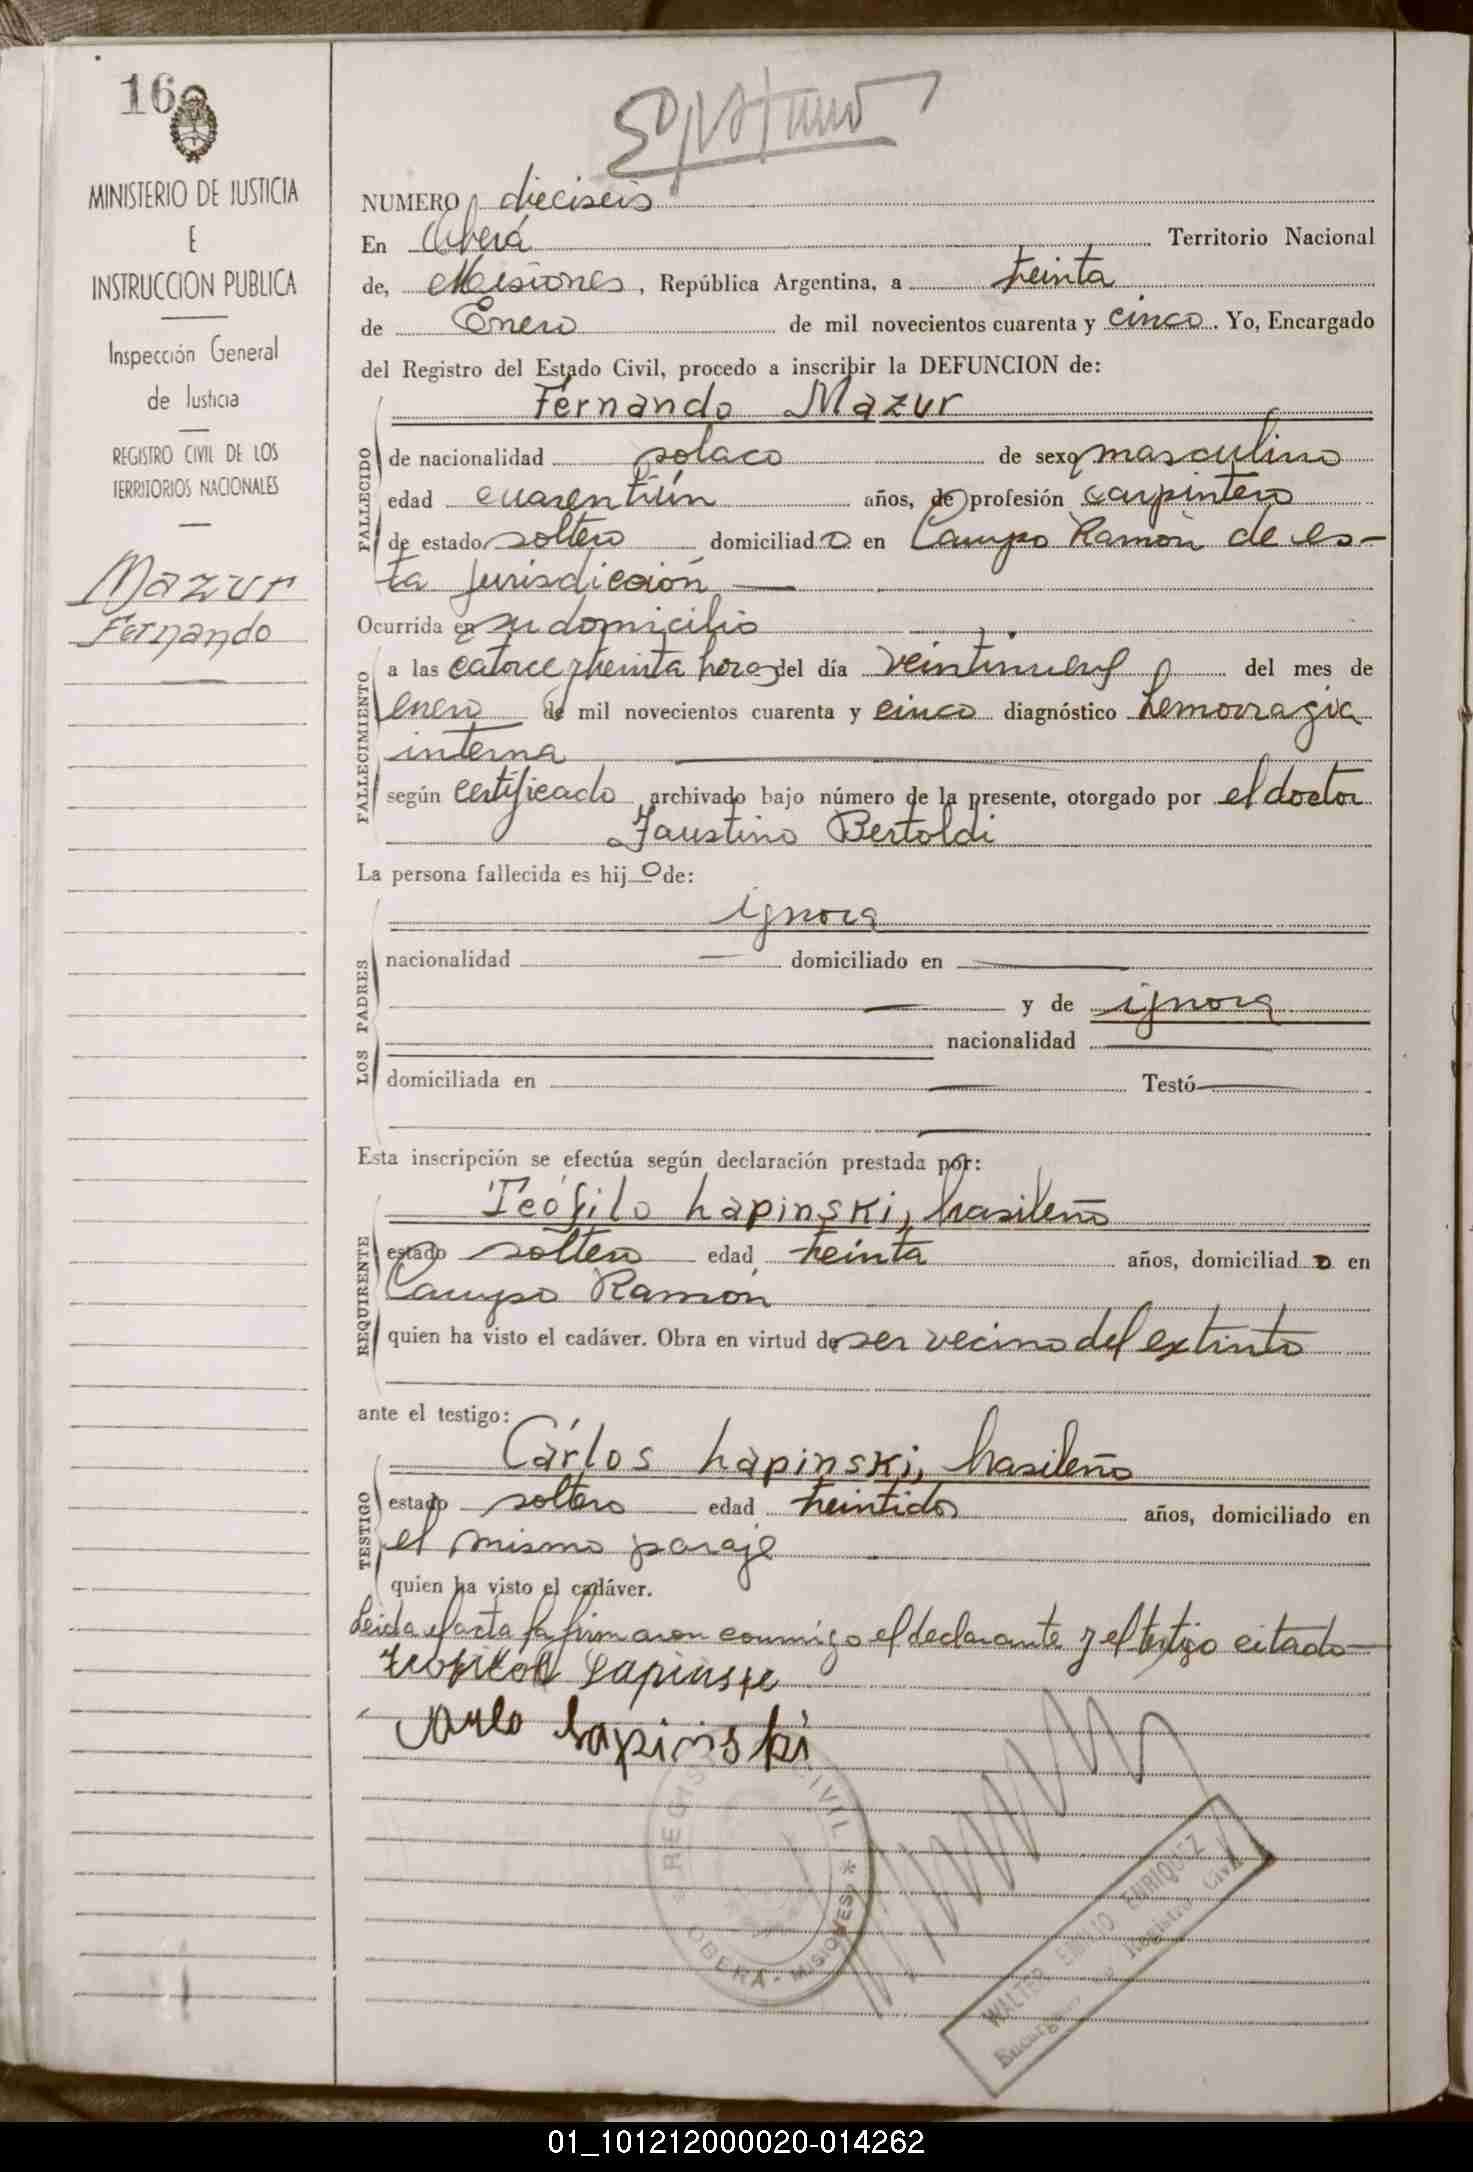 16
MINISTERIO DE JUSTICIA
E
INSTRUCCION PUBLICA
Inspección General
de Justicia
REGISTRO CIVIL DE LOS
TERRITORIOS NACIONALES
Mazur
Fernando
NUMERO dieciseis
En Oberá Territorio Nacional
de, Misiones, República Argentina, a treinta
de Enero de mil novecientos cuarenta y cinco. Yo, Encargado
del Registro del Estado Civil, procedo a inscribir la DEFUNCION de:
Fernando Mazur
FALLECIDO
de nacionalidad polaco de sexo masculino
edad cuarentiún años, de profesión carpintero
de estado soltero domiciliado en Campo Ramón de es-
ta jurisdicción
Ocurrida en su domicilio
FALLECIMIENTO
a las catorce y treinta horas del día veintinueve del mes de
enero de mil novecientos cuarenta y cinco diagnóstico hemorragia
interna
según certificado archivado bajo número de la presente, otorgado por el doctor
Faustino Bertoldi
La persona fallecida es hijo de:
ignora
LOS PADRES
nacionalidad — domiciliado en —
— y de ignora
nacionalidad —
domiciliada en — Testó —
Esta inscripción se efectúa según declaración prestada por:
Teófilo Lapinski, brasileño
REQUIRENTE
estado soltero edad treinta años, domiciliado en
Campo Ramón
quien ha visto el cadáver. Obra en virtud de ser vecino del extinto
ante el testigo:
Cárlos Lapinski, brasileño
TESTIGO
estado soltero edad treintidos años, domiciliado en
el mismo paraje
quien ha visto el cadáver.
Leida el acta la firmaron conmigo el declarante y el testigo citado—
Lapinski
REGISTRO CIVIL
OBERÁ - MISIONES
WALTER EMILIO ENRIQUEZ
Encargado de Registro Civil
01_101212000020-014262